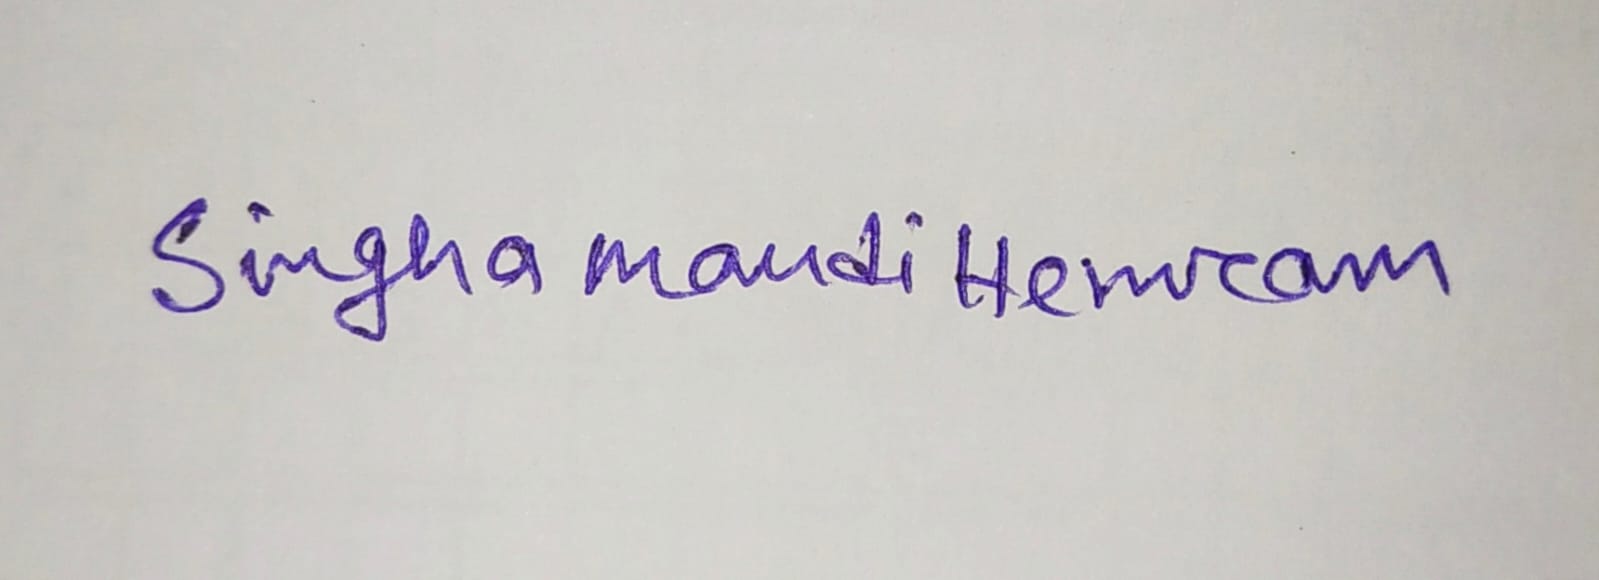 Singha mandi Hemram